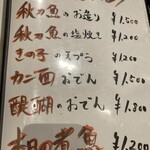 秋刀魚のお造り ¥1,500
秋刀魚の塩焼き ¥1,200
きの子の天プラ ¥1,200
カニ面おでん ¥1,500
醍醐のおでん ¥1,300
本日の煮魚 ¥1,200